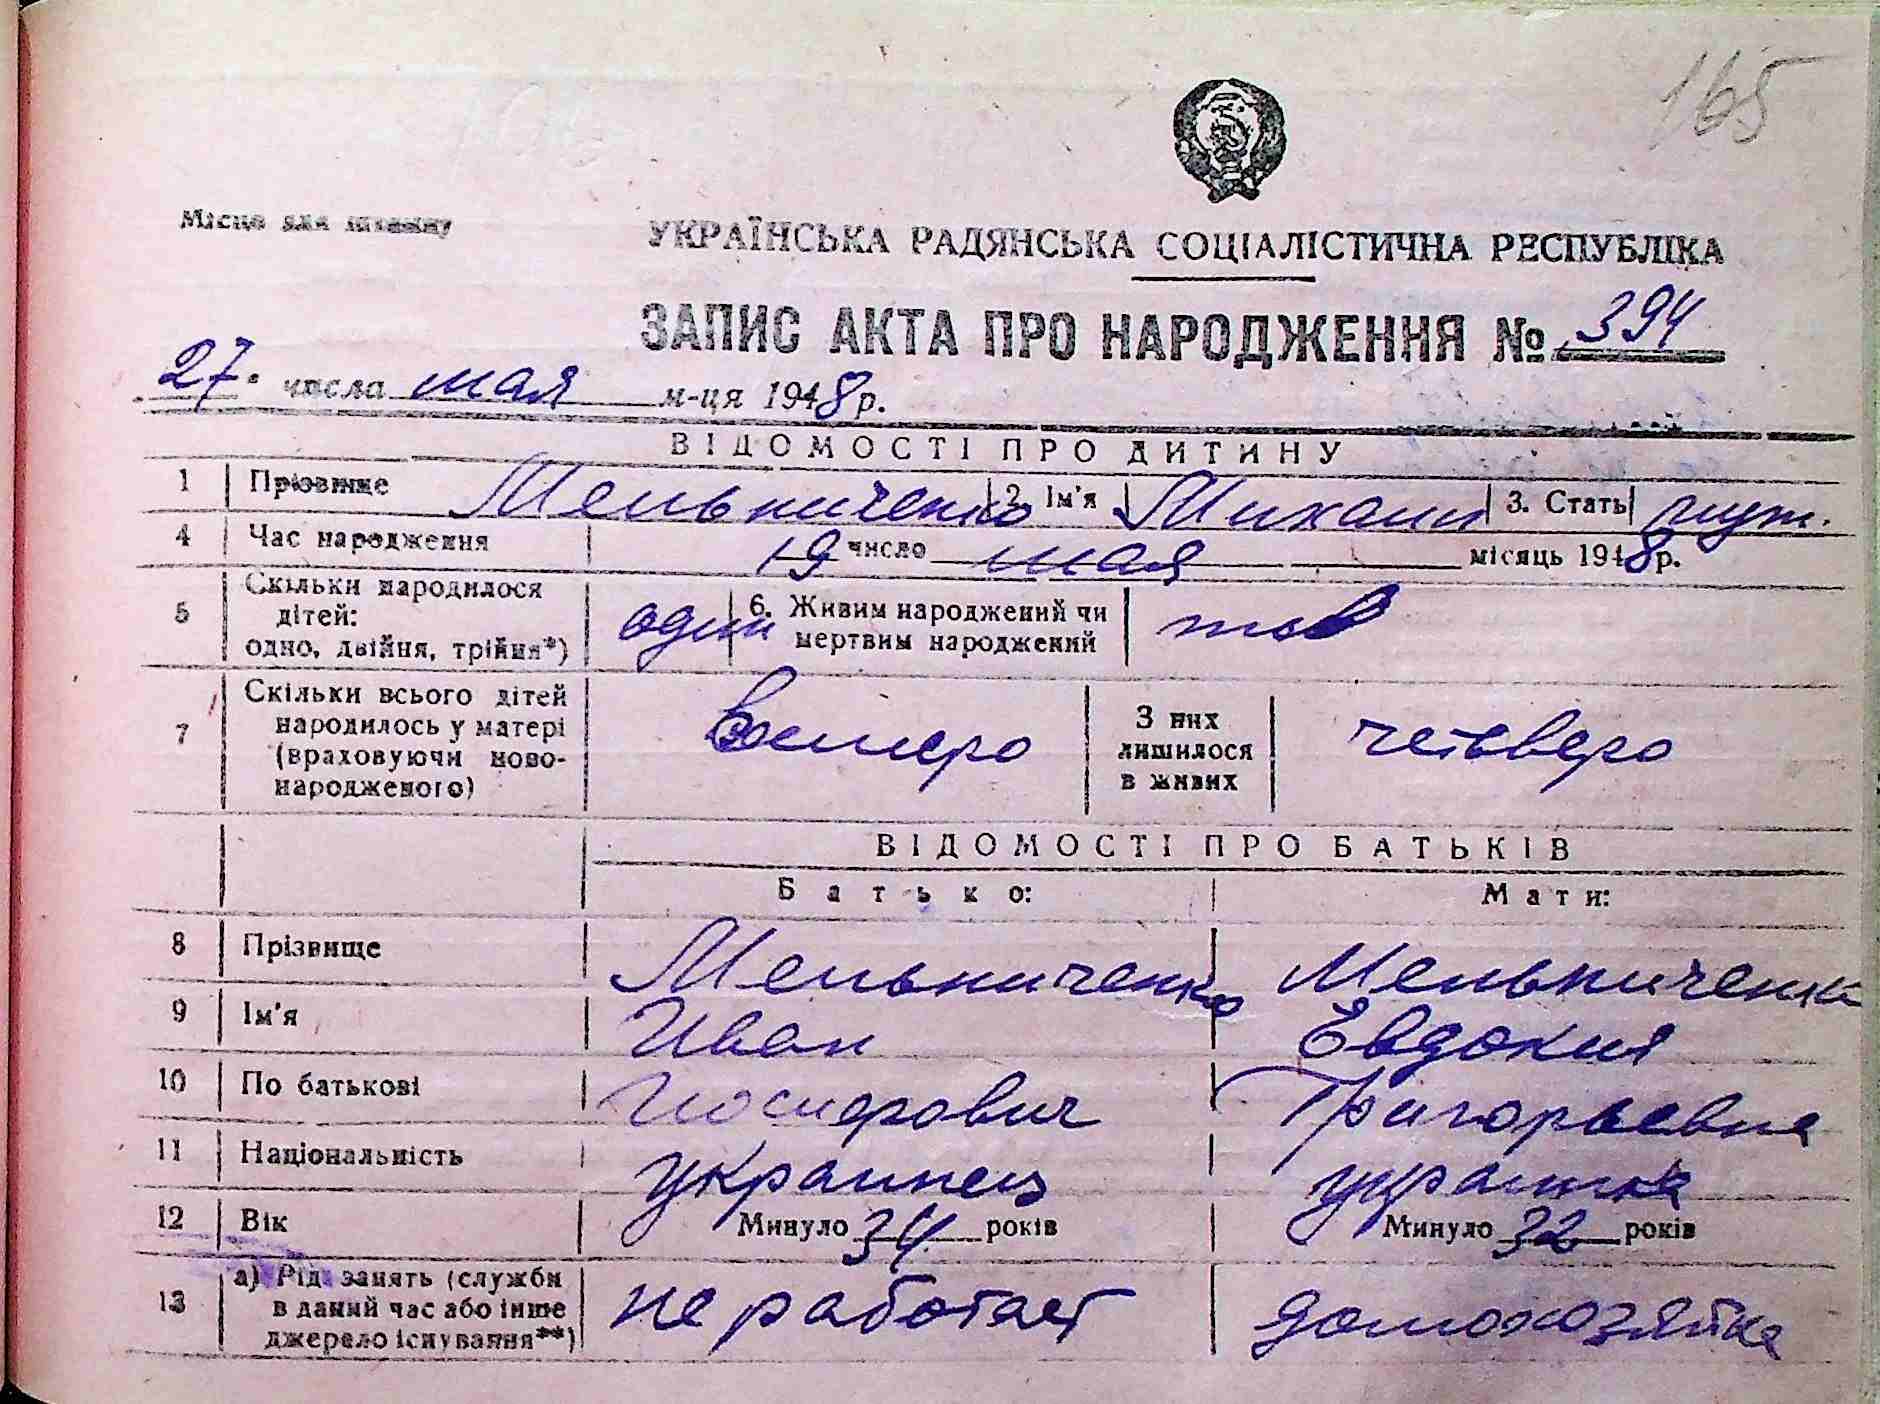 165
Місце для штампу
УКРАЇНСЬКА РАДЯНСЬКА СОЦІАЛІСТИЧНА РЕСПУБЛІКА
ЗАПИС АКТА ПРО НАРОДЖЕННЯ № 394
27 числа мая м-ця 1948 р.
ВІДОМОСТІ ПРО ДИТИНУ
1 Прізвище Мельниченко 2. Ім'я Михаил 3. Стать муж.
4 Час народження 19 число мая місяць 1948 р.
5 Скільки народилося
дітей:
одно, двійня, трійня*) один 6. Живим народжений чи
мертвим народжений
7 Скільки всього дітей
народилось у матері
(враховуючи ново-
народженого)
З них
лишилося
в живих четверо
ВІДОМОСТІ ПРО БАТЬКІВ
Батько: Мати:
8 Прізвище Мельниченко Мельниченко
9 Ім'я Иван Евдокия
10 По батькові Иосифович Григорьевна
11 Національність украинец украинка
12 Вік Минуло 34 років Минуло 32 років
13 а) Рід занять (служби
в даний час або інше
джерело існування**) не работает домохозяйка